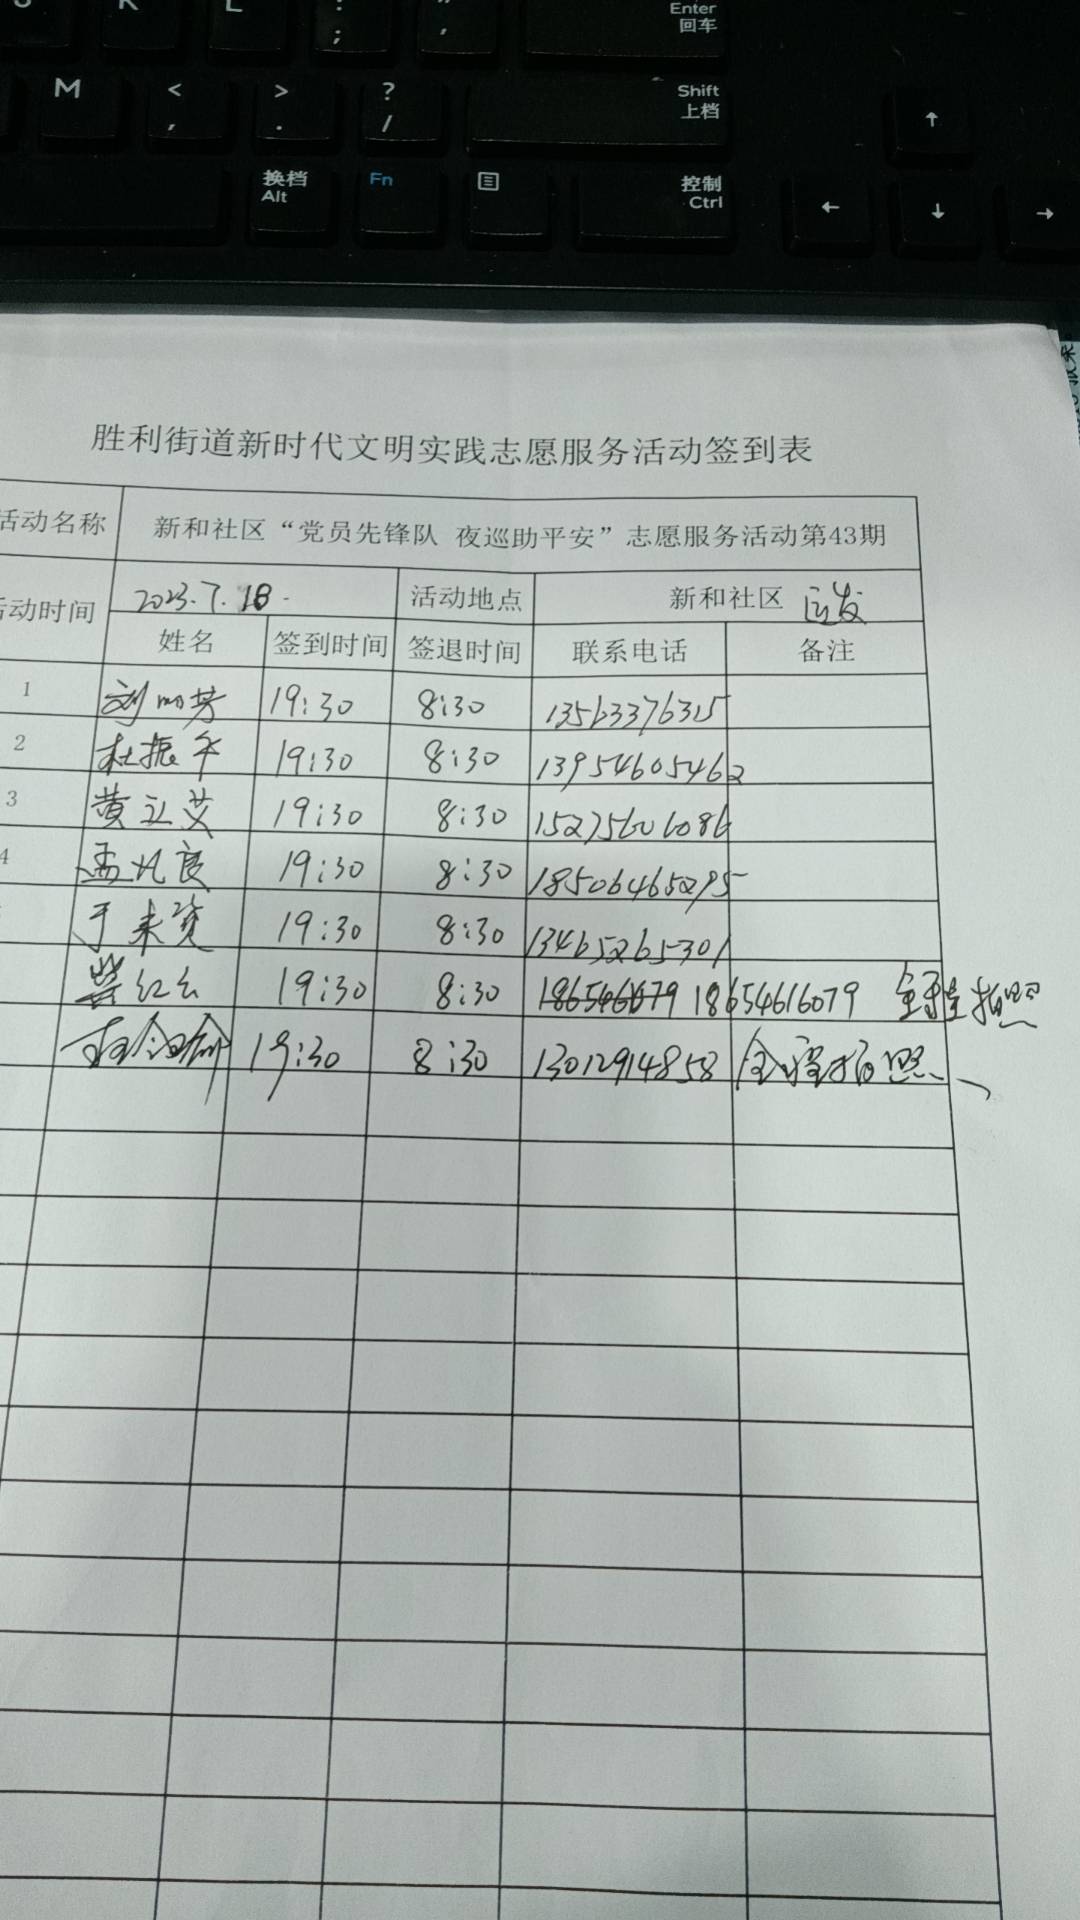 K L : ; " ,
Enter
回车
M < , > . ? /
Shift
上档
换档
Alt
Fn
控制
Ctrl
↑
← ↓ →
胜利街道新时代文明实践志愿服务活动签到表
活动名称 新和社区“党员先锋队 夜巡助平安”志愿服务活动第43期
活动时间 2023.7.18 活动地点 新和社区
姓名 签到时间 签退时间 联系电话 备注
1 刘 芳 19:30 8:30 13563376315
2 杜振 19:30 8:30 13954605462
3 黄立 19:30 8:30 15275606086
4 孟 良 19:30 8:30 18506465295
于来 19:30 8:30 13465265301
红云 19:30 8:30 18654616079 全程拍照
19:30 8:30 13012914858 全程拍照